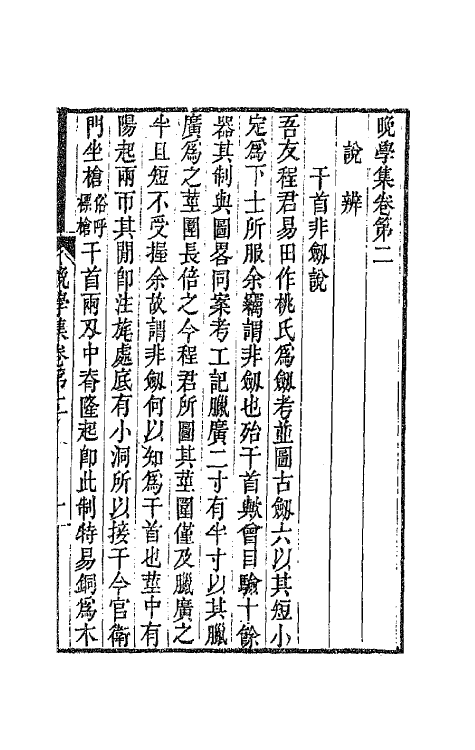 晚學集卷第二
說 辨
干首非劔說
吾友程君易田作桃氏爲劔考並圖古劔六以其短小
定爲下士所服余竊謂非劔也殆干首歟曾目驗十餘
器其制與圖畧同案考工記臘廣二寸有半寸以其臘
廣爲之莖圍長倍之今程君所圖其莖圍僅及臘廣之
半且短不受握余故謂非劔何以知爲干首也莖中有
陽起兩帀其閒卽注旄處底有小洞所以接干今官衛
門坐槍俗呼標槍干首兩刄中脊隆起卽此制特易銅爲木
晚學集卷第二 一